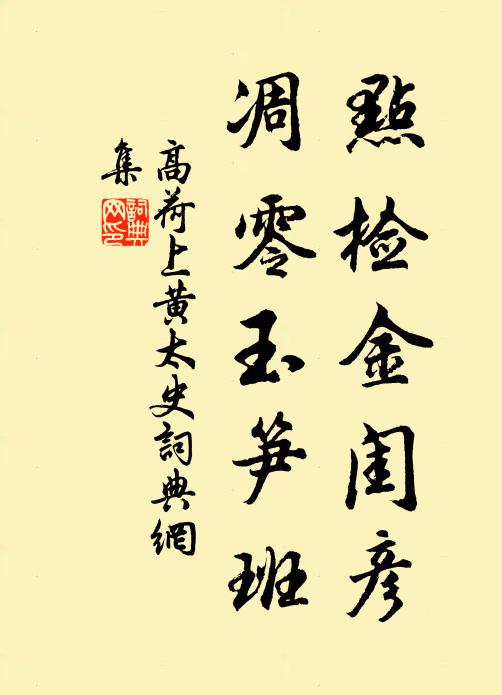 點檢金閨彥
凋零玉笋班
高荷上黃太史詞典網
集
詞典
网印